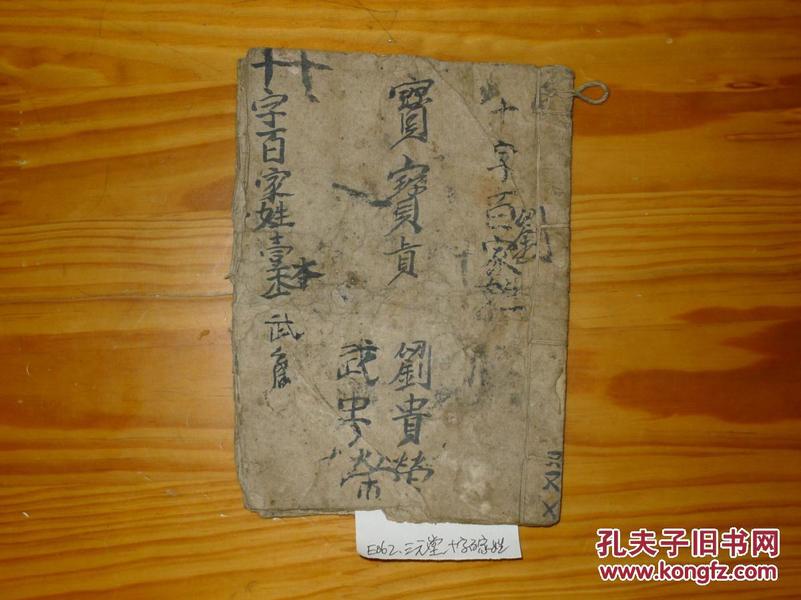 十字百家姓
劉
寶寶貞
劉貴榮
武
榮
十字百家姓壹本
武
E062.三元堂十字百家姓
孔夫子旧书网
www.kongfz.com